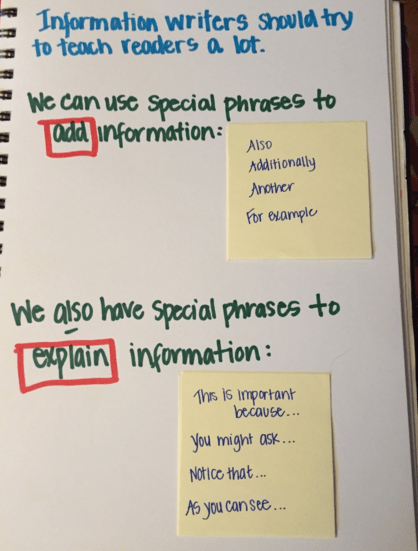 Information writers should try
to teach readers a lot.
We can use special phrases to
add information:
Also
Additionally
Another
For example
We also have special phrases to
explain information:
This is important
because...
You might ask...
Notice that...
As you can see...